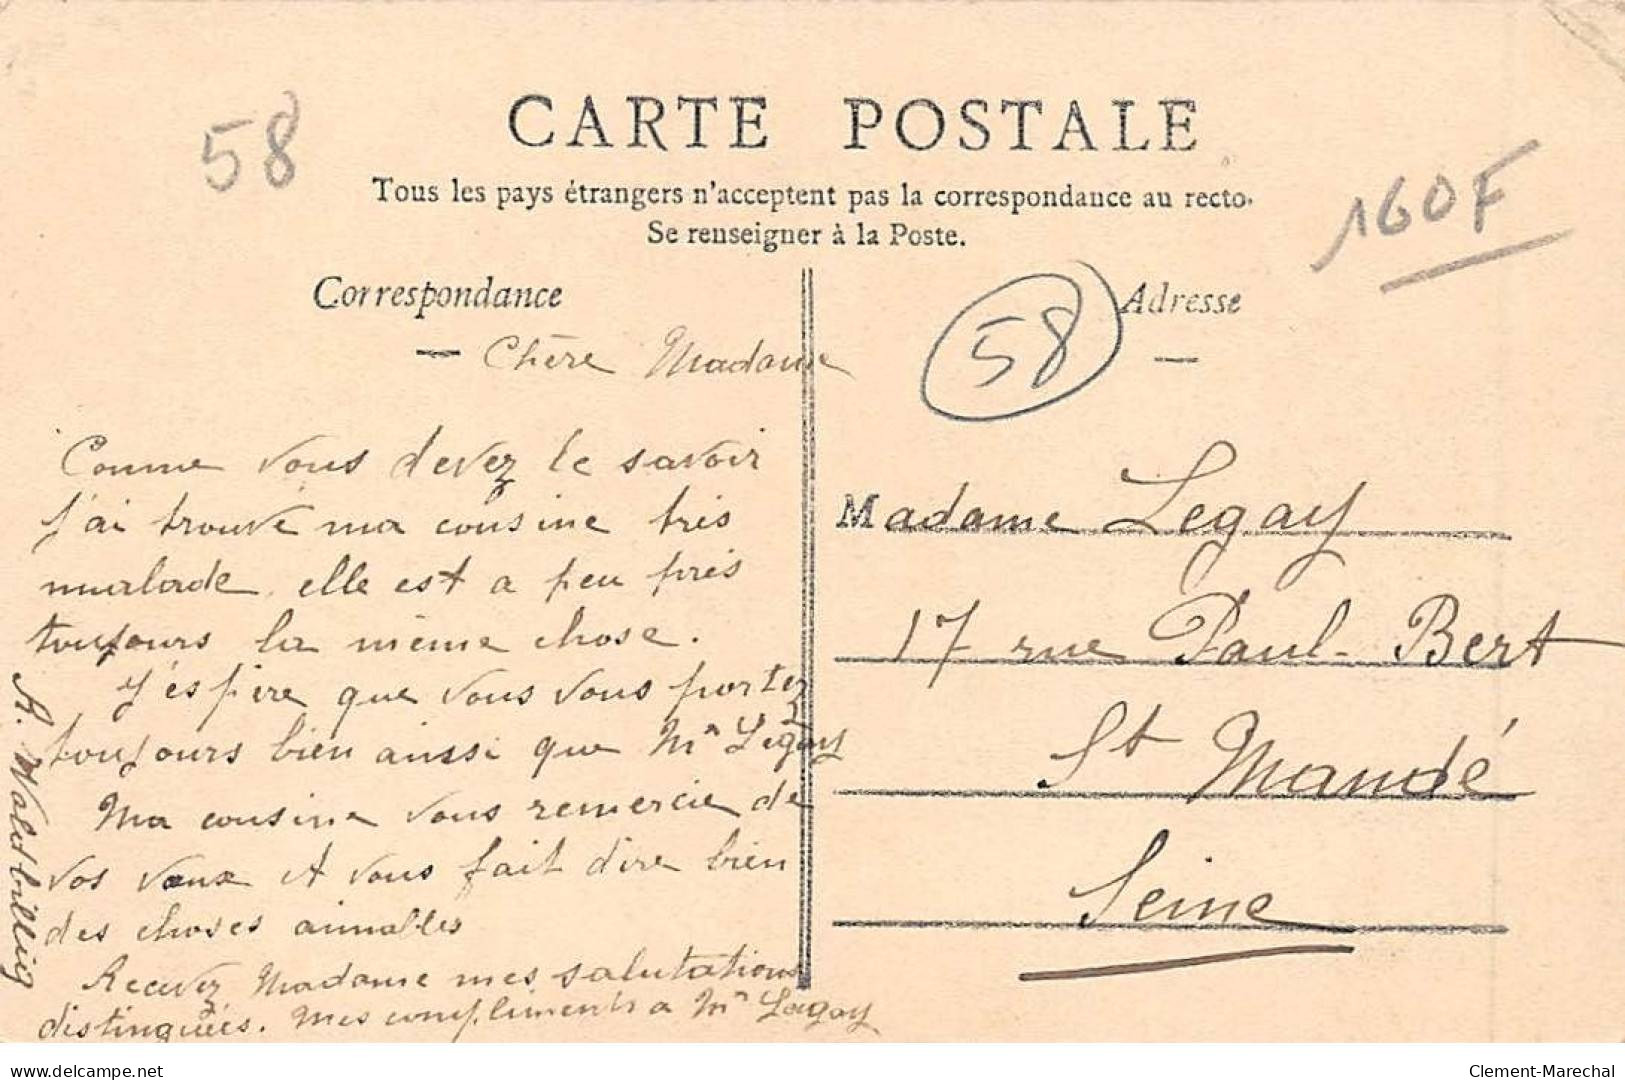 58
CARTE POSTALE
160F
Tous les pays étrangers n'acceptent pas la correspondance au recto.
Se renseigner à la Poste.
Correspondance
Chère Madame
Comme vous devez le savoir
j'ai trouvé ma cousine très
malade, elle est a peu près
toujours la même chose.
J'espère que vous vous portez
toujours bien aussi que Mr Legay
Ma cousine vous remercie de
vos vœux et vous fait dire bien
des choses aimables
Recevez Madame mes salutations
distinguées. Mes compliments a Mr Legay
A. Waldbillig
58
Adresse
Madame Legay
17 rue Paul-Bert
St Mandé
Seine
delcampe.net
Clement-Marechal